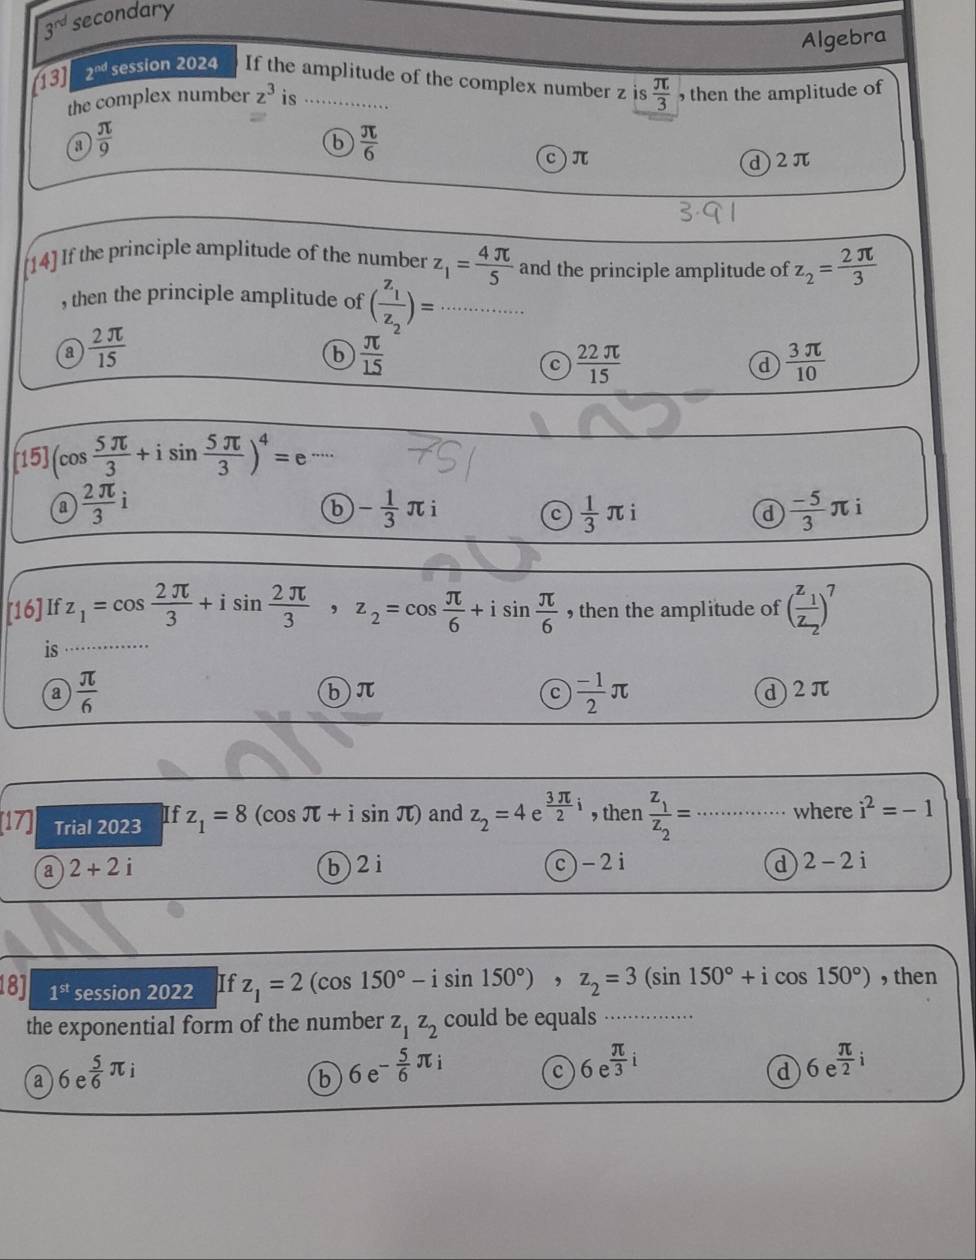 3rd secondary
Algebra
[13] 2nd session 2024 If the amplitude of the complex number z is π/3 , then the amplitude of
the complex number z³ is ..............
(a) π/9 (b) π/6 (c) π (d) 2 π
3.91
[14] If the principle amplitude of the number z₁ = 4 π/5 and the principle amplitude of z₂ = 2 π/3
, then the principle amplitude of (z₁/z₂) = ..............
(a) 2 π/15 (b) π/15 (c) 22 π/15 (d) 3 π/10
[15] (cos 5 π/3 + i sin 5 π/3)⁴ = e .....
(a) 2 π/3 i (b) - 1/3 π i (c) 1/3 π i (d) -5/3 π i
[16] If z₁ = cos 2 π/3 + i sin 2 π/3 , z₂ = cos π/6 + i sin π/6 , then the amplitude of (z₁/z₂)⁷
is ..............
(a) π/6 (b) π (c) -1/2 π (d) 2 π
[17] Trial 2023 If z₁ = 8 (cos π + i sin π) and z₂ = 4 e^(3 π/2 i) , then z₁/z₂ = .............. where i² = - 1
(a) 2 + 2 i (b) 2 i (c) - 2 i (d) 2 - 2 i
18] 1st session 2022 If z₁ = 2 (cos 150° - i sin 150°) , z₂ = 3 (sin 150° + i cos 150°) , then
the exponential form of the number z₁ z₂ could be equals ..............
(a) 6 e^(5/6 π i) (b) 6 e^(- 5/6 π i) (c) 6 e^(π/3 i) (d) 6 e^(π/2 i)